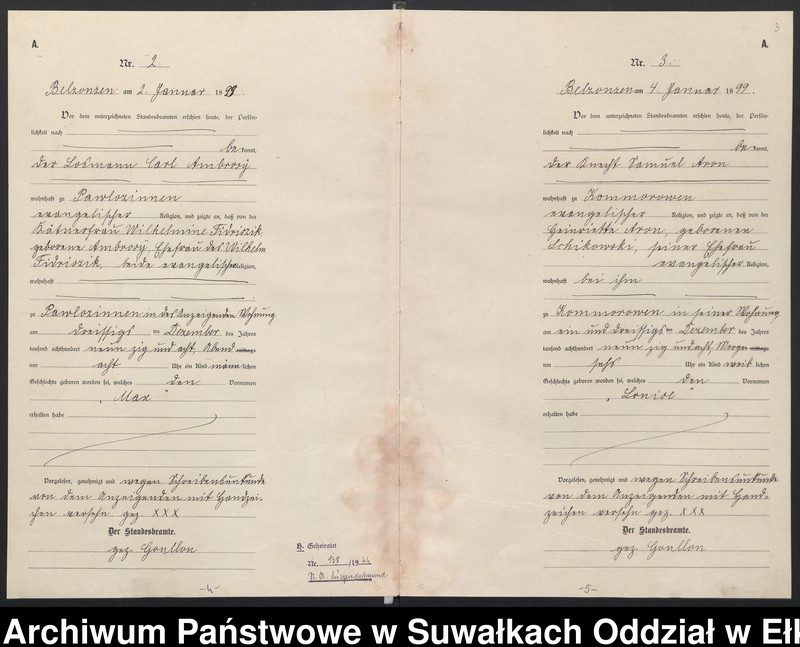 3
A.
Nr. 2.
Belzonzen am 2 Januar 1899.
Vor dem unterzeichneten Standesbeamten erschien heute, der Persön-
lichkeit nach
bekannt,
der Losmann Carl Ambrosy
wohnhaft zu Pawlozinnen
evangelischer Religion, und zeigte an, daß von der
Kätnerfrau Wilhelmine Fidriozik,
geborene Ambrosy Ehefrau des Wilhelm
Fidriozik, beide evangelischer Religion,
wohnhaft
zu Pawlozinnen in des Anzeigenden Wohnung
am dreissigs ten Dezember des Jahres
tausend achthundert neun zig und acht, Abend mittags
um acht Uhr ein Kind männlichen
Geschlechts geboren worden sei, welches den Vornamen
„Max"
erhalten habe
Vorgelesen, genehmigt und wegen Schreibensunkunde
von dem Anzeigenden mit Handzei-
chen versehn gez. XXX
Der Standesbeamte.
gez. Goullon
H. Geheiratet
Nr. 138 /1922
St. A. Lütgendortmund
-4-
A.
Nr. 3.
Belzonzen am 4. Januar 1899.
Vor dem unterzeichneten Standesbeamten erschien heute, der Persön-
lichkeit nach
bekannt,
der Knecht Samuel Aron
wohnhaft zu Kommorowen
evangelischer Religion, und zeigte an, daß von der
Heinriette Aron, geborenen
Schikowski, seiner Ehefrau
evangelischer Religion,
wohnhaft bei ihm
zu Kommorowen in seiner Wohnung
am ein und dreissigs ten Dezember des Jahres
tausend achthundert neun zig und acht, Morgen mittags
um sechs Uhr ein Kind weiblichen
Geschlechts geboren worden sei, welches den Vornamen
„Louise"
erhalten habe
Vorgelesen, genehmigt und wegen Schreibensunkunde
von dem Anzeigenden mit Hand-
zeichen versehn gez. XXX
Der Standesbeamte.
gez. Goullon
-5-
Archiwum Państwowe w Suwałkach Oddział w Ełk